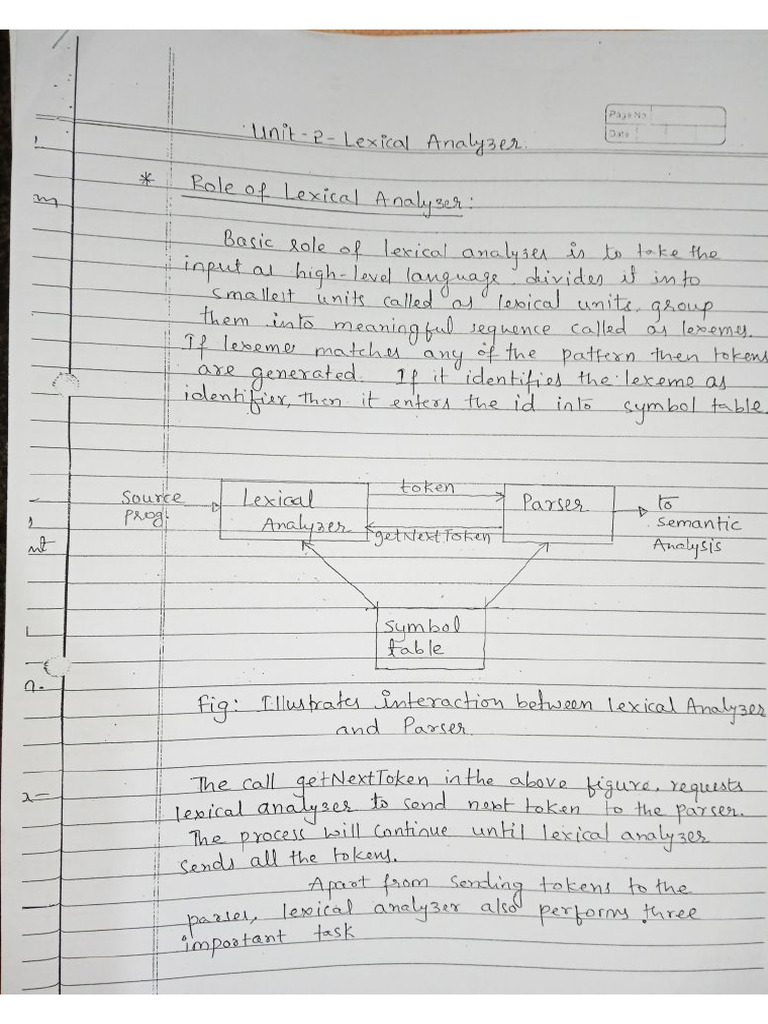 Page No
Date
Unit-2-Lexical Analyzer.
* Role of Lexical Analyzer:
Basic role of lexical analyzer is to take the
input as high-level language, divides it into
smallest units called as lexical units, group
them into meaningful sequence called as lexemes.
If lexeme matches any of the pattern then tokens
are generated. If it identifies the lexeme as
identifier, then it enters the id into symbol table.
token
Source
prog.
Lexical
Analyzer
getNextToken
Parser
to
semantic
Analysis
Symbol
table
fig: Illustrates interaction between Lexical Analyzer
and Parser.
The call getNextToken in the above figure, requests
lexical analyzer to send next token to the parser.
The process will continue until lexical analyzer
sends all the tokens.
Apart from sending tokens to the
parser, lexical analyzer also performs three
important task